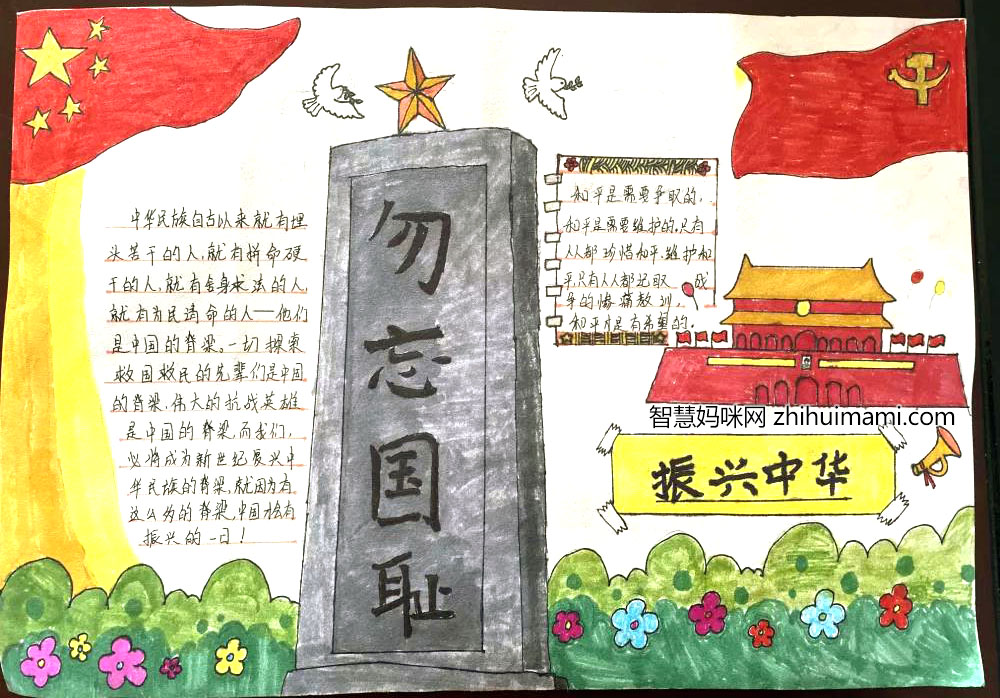 中华民族自古以来就有埋
头苦干的人,就有拼命硬
干的人,就有舍身求法的人,
就有为民请命的人——他们
是中国的脊梁。一切探索
救国救民的先辈们是中国
的脊梁,伟大的抗战英雄
是中国的脊梁,而我们,
必将成为新世纪复兴中
华民族的脊梁,就因为有
这么多的脊梁,中国才会有
振兴的一日!
勿
忘
国
耻
和平是需要争取的,
和平是需要维护的,只有
人人都珍惜和平,维护和
平,只有人人都记取 战
争的惨痛教训,
和平才是有希望的。
智慧妈咪网 zhihuimami.com
振兴中华